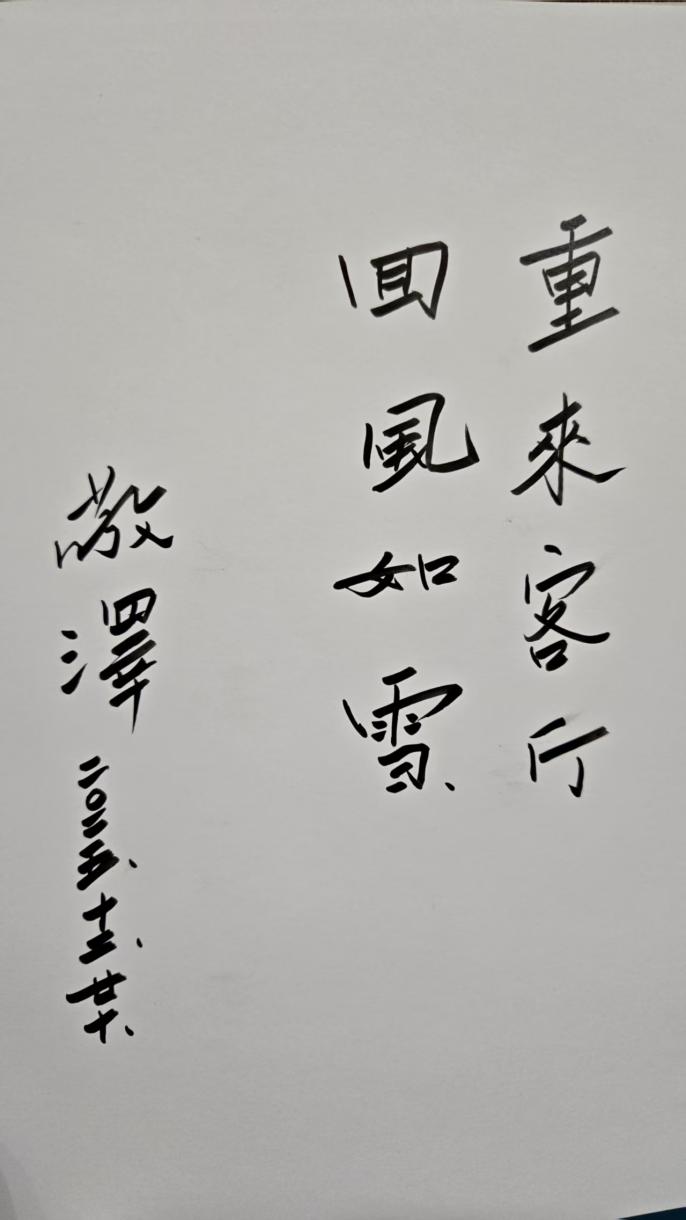 重來客行
回風如雪
敬澤
二〇二五、十二、廿七、